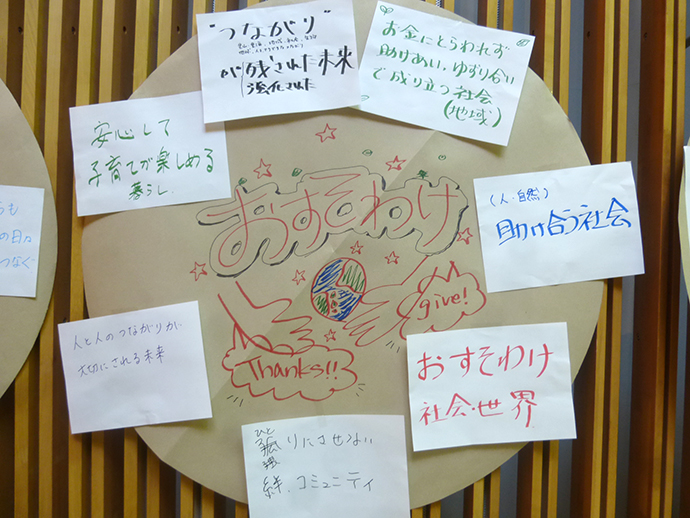 "つながり"
が残された未来
強化された
お金にとらわれず
助けあい、ゆずり合い
で成り立つ社会
(地域)
安心して
子育てが楽しめる
暮し
おすそわけ
(人・自然)
助け合う社会
give!
Thanks!!
人と人のつながりが
大切にされる未来
おすそわけ
社会・世界
ひと
りにさせない
絆、コミュニティ
らも
の日々
つなぐ